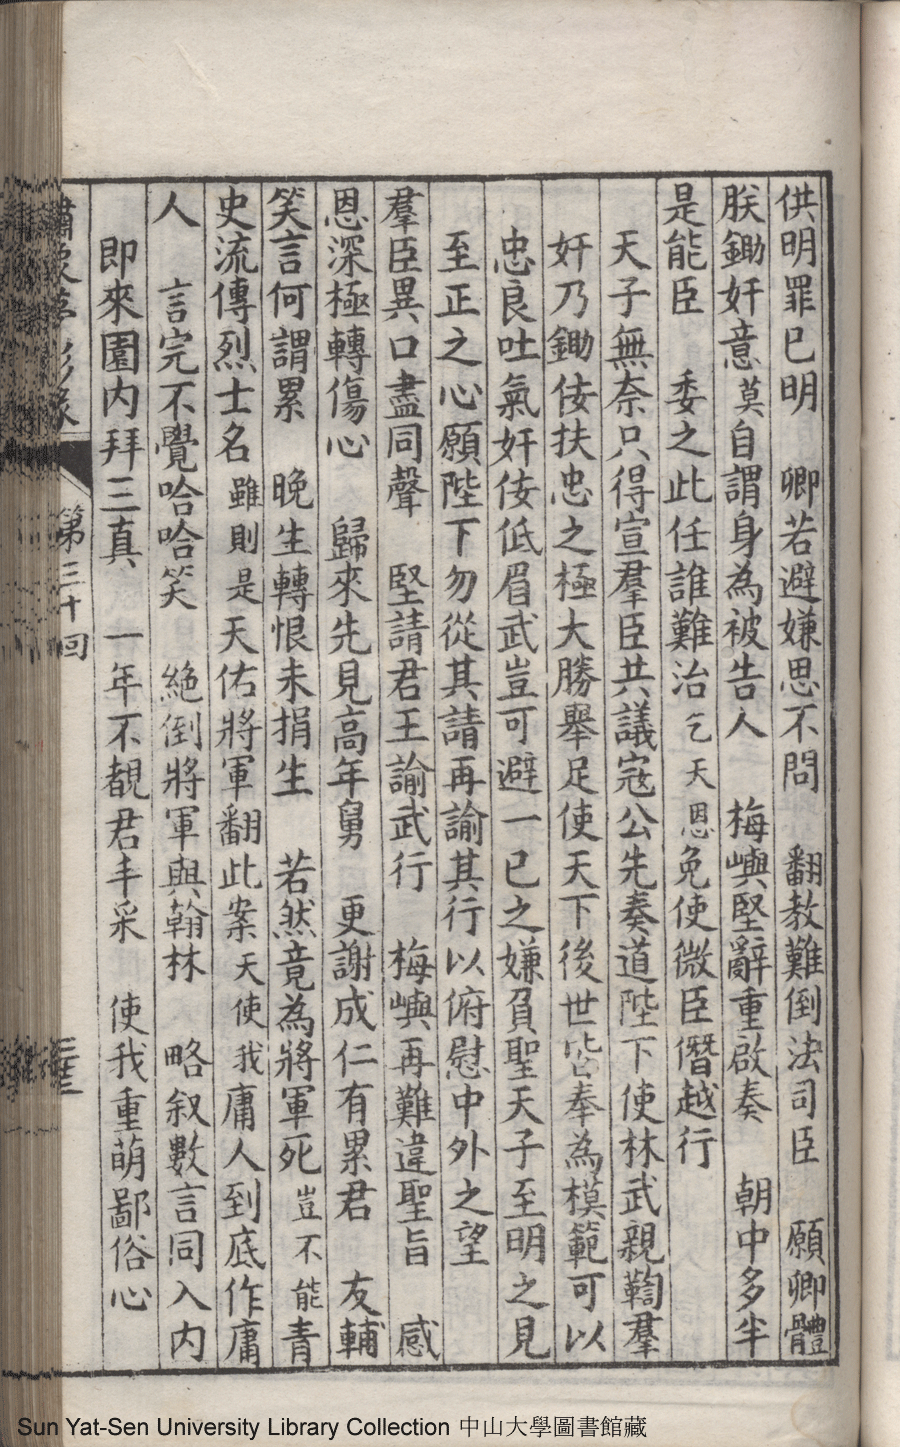 供明罪已明　卿若避嫌思不問　翻教難倒法司臣　願卿體
朕鋤奸意莫自謂身為被告人　梅嶼堅辭重啟奏　朝中多半
是能臣　委之此任誰難治乞天恩免使微臣僭越行
天子無奈只得宣羣臣共議寇公先奏道陛下使林武親鞫羣
奸乃鋤佞扶忠之極大勝舉足使天下後世皆奉為模範可以
忠良吐氣奸佞低眉武豈可避一已之嫌負聖天子至明之見
至正之心願陛下勿從其請再諭其行以俯慰中外之望
羣臣異口盡同聲　堅請君王諭武行　梅嶼再難違聖旨　感
恩深極轉傷心　歸來先見高年舅　更謝成仁有累君　友輔
笑言何謂累　晚生轉恨未捐生　若然竟為將軍死豈不能青
史流傳烈士名雖則是天佑將軍翻此案天使我庸人到底作庸
人　言完不覺哈哈笑　絕倒將軍與翰林　略叙數言同入内
即來園内拜三真　一年不覩君丰采　使我重萌鄙俗心
第三十回
Sun Yat-Sen University Library Collection 中山大學圖書館藏